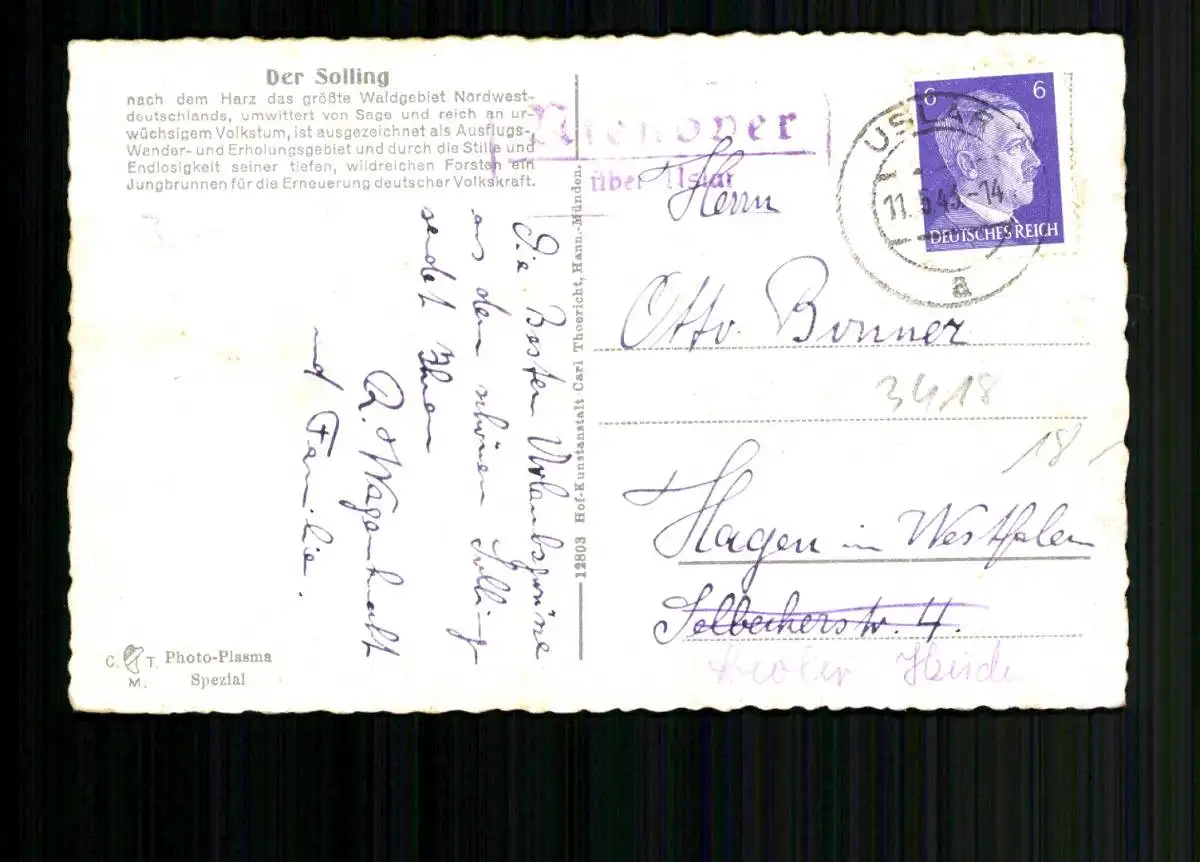 Der Solling
nach dem Harz das größte Waldgebiet Nordwest-
deutschlands, umwittert von Sage und reich an ur-
wüchsigem Volkstum, ist ausgezeichnet als Ausflugs-
Wander- und Erholungsgebiet und durch die Stille und
Endlosigkeit seiner tiefen, wildreichen Forsten ein
Jungbrunnen für die Erneuerung deutscher Volkskraft.
Nienover
über Uslar
6 6
DEUTSCHES REICH
USLAR
11.5.43.-14
a
Die Besten Urlaubsgrüße
aus dem schönen Solling
sendet Ihnen
R. Wagenknecht
und Familie.
12803 Hof-Kunstanstalt Carl Thoericht, Hann.-Münden.
Herrn
Otto Bonner
3418
18
Hagen in Westfalen
Selbeckerstr. 4.
C. T. M.
Photo-Plasma
Spezial